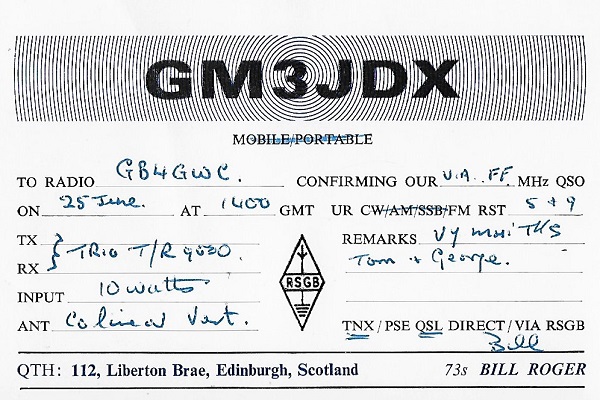 GM3JDX
MOBILE/PORTABLE
TO RADIO GB4GWC. CONFIRMING OUR VIA FF MHz QSO
ON 25 June. AT 1400 GMT UR CW/AM/SSB/FM RST 5+9
TX
RX } TRIO T/R 9000.
INPUT 10 watts
ANT Colinear Vert.
RSGB
REMARKS Vy mni TKS
Tom + George.
TNX / PSE QSL DIRECT / VIA RSGB
Bill
QTH: 112, Liberton Brae, Edinburgh, Scotland 73s BILL ROGER